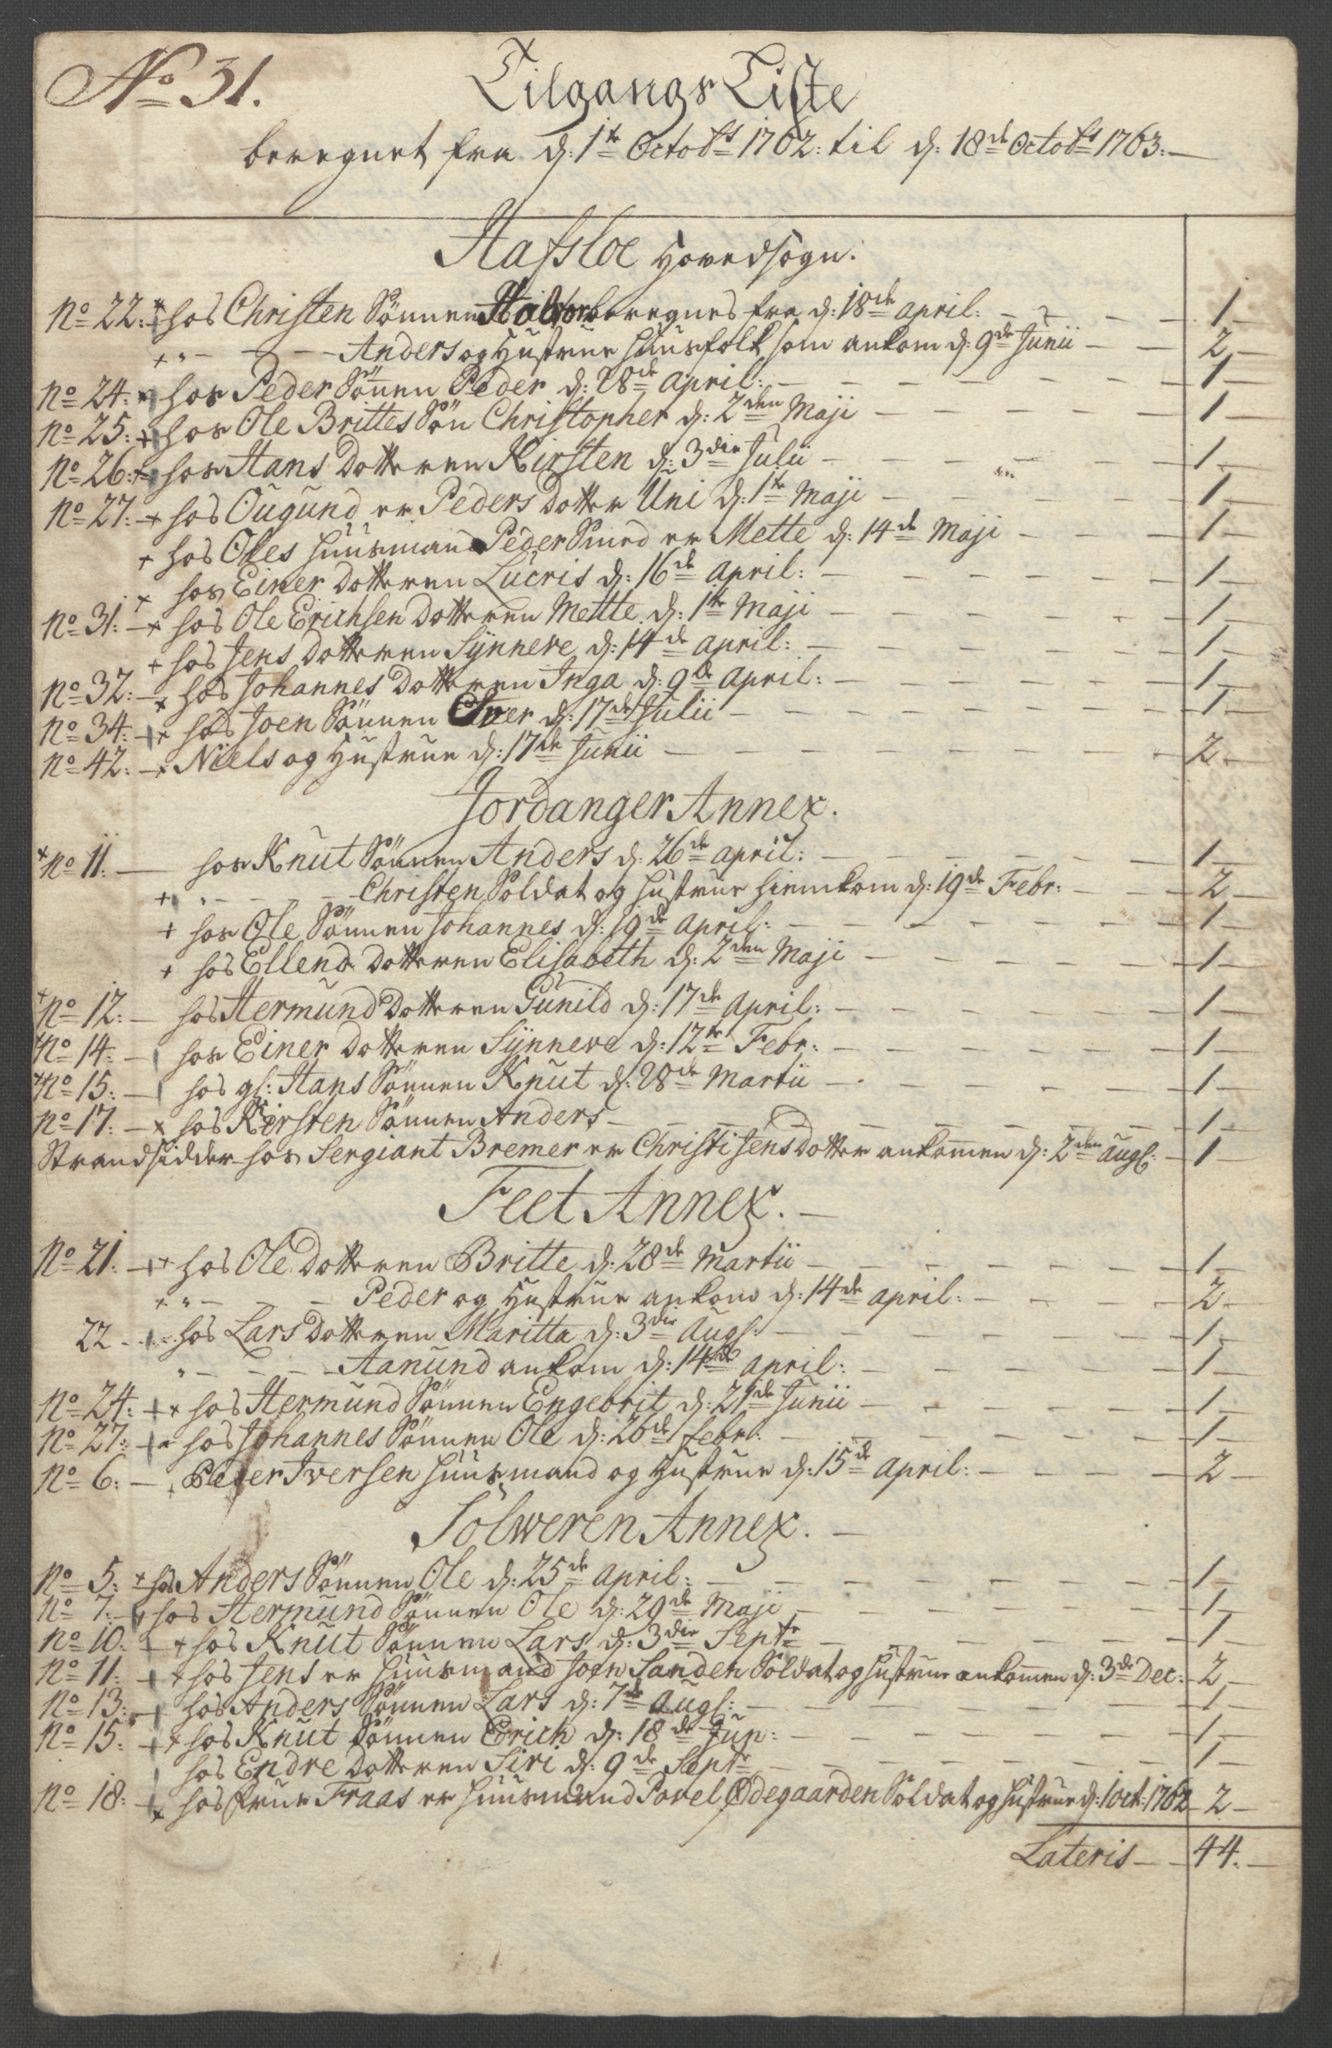 No 31.
Tilgangs Liste
beregnet fra d: 1te Octobs 1762: til d: 18de Octobs 1763:
Hafsloe Hovedsogn.
No 22: hos Christen Sönnen Halvor beregnes fra d: 18de april: 1
" Anders og Hustrue Huusfolk som ankom d: 9de Junii 2
No 24: hos Peder Sönen Peder d: 28de april: 1
No 25: hos Ole Brittes Sön Christopher d: 2den Maji 1
No 26: hos Hans Dotteren Kirsten d: 3die Julii 1
No 27: hos Ougund er Peders Dotter Uni d: 1te Maji 1
hos Oles Huusmand Peder Smed er Mette d: 14de Maji 1
hos Einer Dotteren Lucris d: 16de April: 1
No 31: hos Ole Erichsen Dotteren Mette d: 1te Maji 1
hos Jens Dotteren Sÿnneve d: 14de april: 1
No 32: hos Johannes Dotteren Inga d: 9de april: 1
No 34: hos Joen Sönnen Iver d: 17de Julii 1
No 42: Niels og Hustrue d: 17de Junii 2
Jordanger Annex.
No 11: hos Knut Sönnen Anders d: 26de april: 1
" Christen Soldat og Hustrue hiemkom d: 19de Febr: 2
hos Ole Sönnen Johannes d: 19de april: 1
hos Ellend Dotteren Elisabeth d: 2den Maji 1
No 12: hos Hermund Dotteren Gunild d: 17de april: 1
No 14: hos Einer Dotteren Sÿnneve d: 12te Febr: 1
No 15: hos gl: Hans Sönnen Knut d: 28de Martii 1
No 17: hos Kirsten Sönnen Anders 1
Strandsidder hos Sergiant Bremer er Christi Jens Dotter ankommen d: 2den Augs: 1
Feet Annex.
No 21: hos Ole Dotteren Britte d: 28de Martii 1
" Peder og Hustrue ankom d: 14de april: 2
22 hos Lars Dotteren Maritta d: 3die Augs: 1
" Aanund ankom d: 14de april: 1
No 24: hos Hermund Sönnen Engebrit d: 21de Junii 1
No 27: hos Johannes Sönnen Ole d: 26de febr: 1
No 6: Peder Iversen Huusmand og Hustrue d: 15de april: 2
Solweren Annex.
No 5: hos Anders Sönnen Ole d: 25de april: 1
No 7: hos Hermund Sönnen Ole d: 29de Maji 1
No 10: hos Knut Sönnen Lars d: 3die Septr 1
No 11: hos Jens er Huusmand Joen Sanden Soldat og Hustrue ankommen d: 3de Dec: 2
No 13: hos Anders Sönnen Lars d: 7de Augs: 1
No 15: hos Knut Sönnen Erich d: 18de Jun: 1
hos Endre Dotteren Siri d: 9de Septr 1
No 18: hos frue Fraas er Huusmand Povel Ødegaarden Soldat og Hustrue d: 1 oct: 1762 2
Lateris 44.